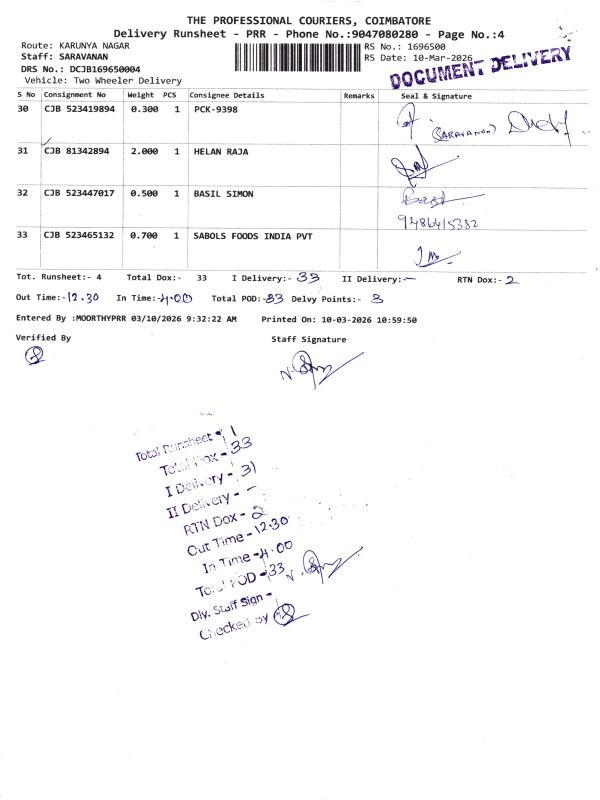 THE PROFESSIONAL COURIERS, COIMBATORE
Delivery Runsheet - PRR - Phone No.:9047080280 - Page No.:4
Route: KARUNYA NAGAR
Staff: SARAVANAN
DRS No.: DCJB169650004
Vehicle: Two Wheeler Delivery
RS No.: 1696500
RS Date: 10-Mar-2026
DOCUMENT DELIVERY
S No Consignment No Weight PCS Consignee Details Remarks Seal & Signature
30 CJB 523419894 0.300 1 PCK-9398
(SARAVANAN)
31 CJB 81342894 2.000 1 HELAN RAJA
32 CJB 523447017 0.500 1 BASIL SIMON
Basil
9486415382
33 CJB 523465132 0.700 1 SABOLS FOODS INDIA PVT
Tot. Runsheet:- 4 Total Dox:- 33 I Delivery:- 33 II Delivery:- — RTN Dox:- 2
Out Time:-12.30 In Time:-4.00 Total POD:-33 Delvy Points:- 3
Entered By :MOORTHYPRR 03/10/2026 9:32:22 AM Printed On: 10-03-2026 10:59:50
Verified By Staff Signature
Total Runsheet - 1
Total Dox - 33
I Delivery - 31
II Delivery - —
RTN Dox - 2
Out Time - 12.30
In Time - 4.00
Total POD - 33
Dly. Staff Sign -
Checked by